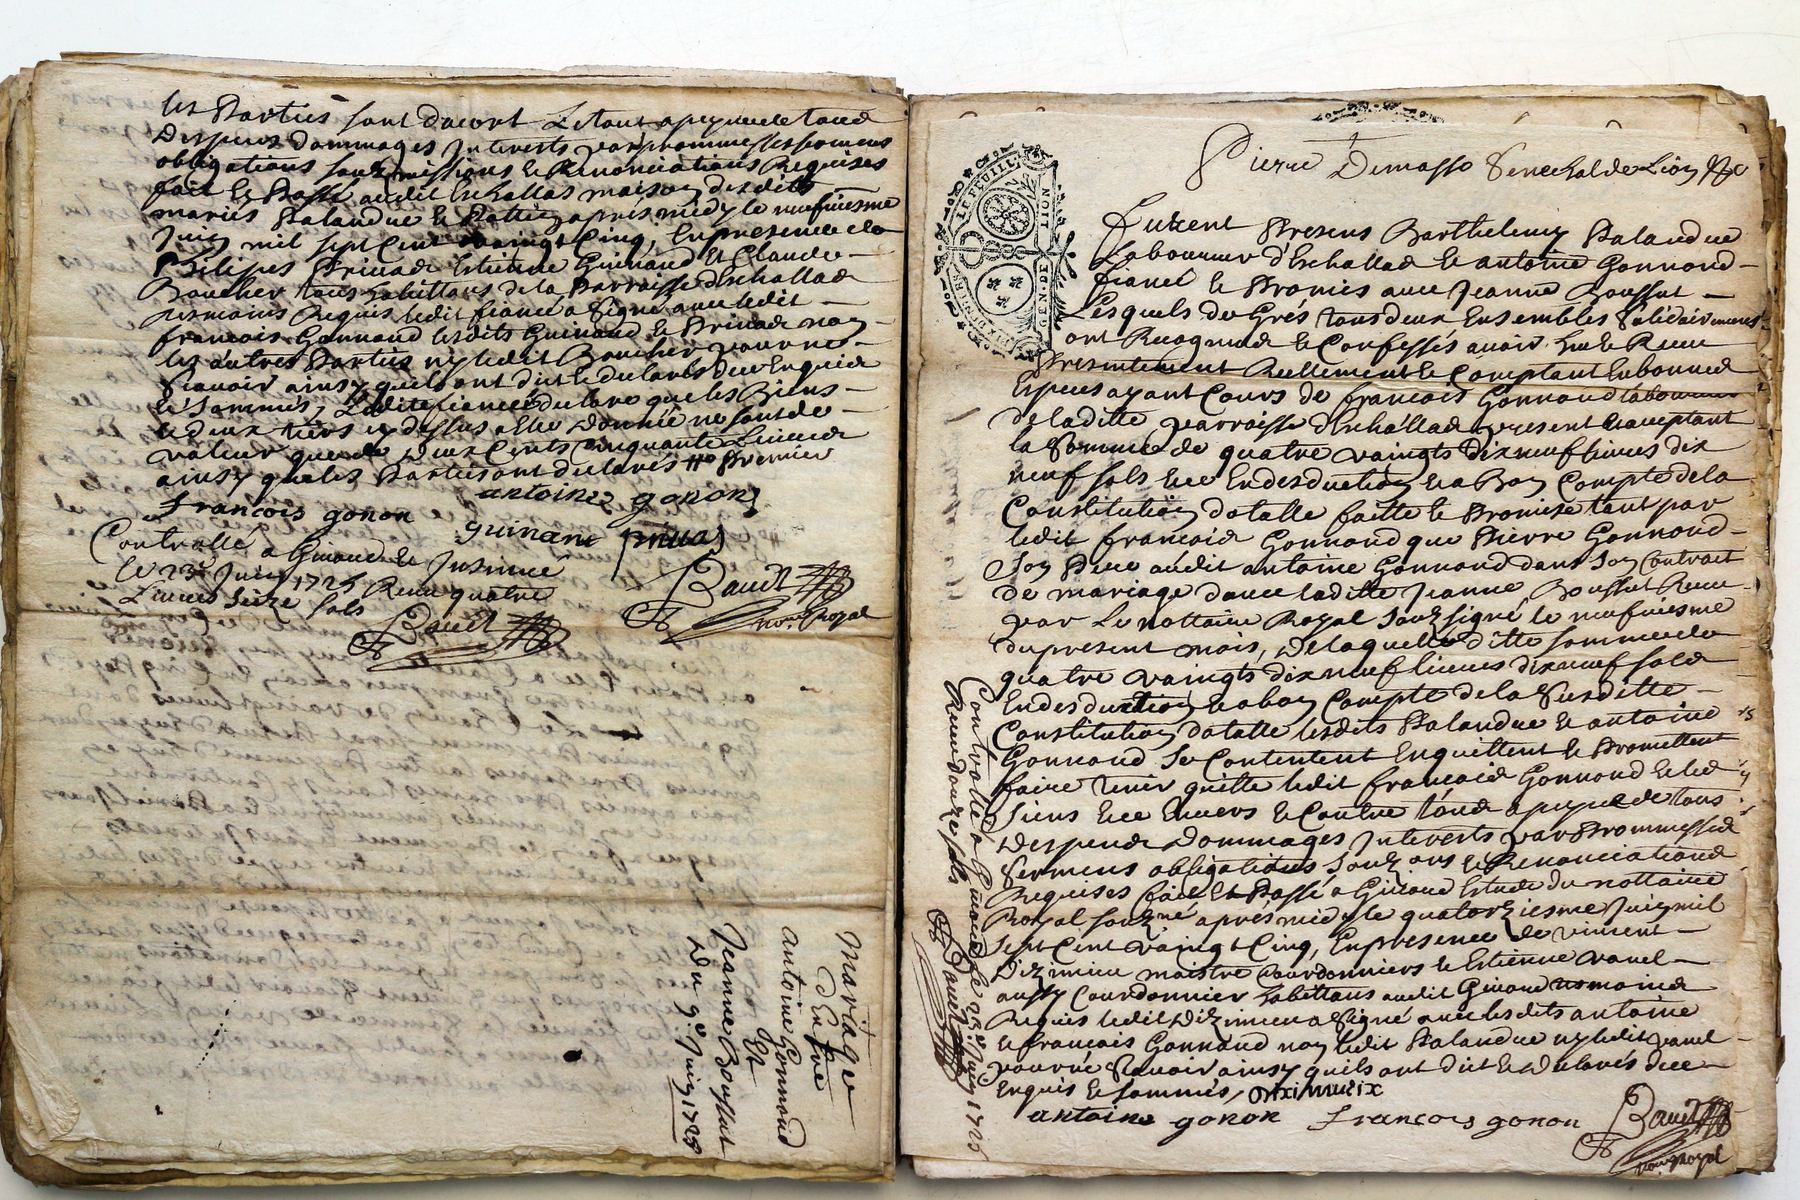 les Parties sont dacort Letout apeyne de tous
Despens dommages Interests par prommesses sermens
obligations soubzmissions et Renonciations Requises
fait et Passé audit Eschallas maison desdits
mariés Palandue et après midy le neufviesme
Juin mil sept Cent vaingt Cinq, En presence de
Philipes Prinad Estienne Guinand et Claude
Boucher tous habittans de la Parroisse d'Eschallas
tesmoins Requis ledit fiancé a Signé avec ledit
françois Gonnand lesdits Guinand et Prinad non
les autres Parties ny ledit Boucher pour ne
Sçavoir ainsy quils ont dit et declarés dece Enquis
et Sommés, Ladite fiancée declare que les Biens
et deux tiers cy dessus a Elle donnée ne sont de
valeur que de deux Cents cinquante Livres
ainsy que les Parties ont declarés Premier
antoine gonon
francois gonon
guinand prinad
Controllé a Givors le
Le 23e Juin 1725 Receu quatre
Livres Seize sols
Baudt
Baudt
nore Royal
mariage
D'Entre
antoine Gonnond
Et
Jeanne Boussut
Du 9e Juin 1725
LE FEUILL
GEN·DE LION
Pierre Demasso Senechal de Lion
Furent Presens Barthelemy Palandue
Laboureur d'Eschallas et antoine Gonnond
fiancé et Promis avec Jeanne Boussut
Lesquels de Grés tous deux Ensembles Solidairement
ont Recognus et Confessés avoir Eu et Receu
Presentement Reellement et Comptant En bonnes
Especes ayant Cours de francois Gonnond laboureur
de laditte parroisse d'Eschallas present et acceptant
la Somme de quatre vaingts dix neuf livres dix
neuf sols Et ce En desduction et a Bon Compte de la
Constitution dotalle faitte et Promise tant par
ledit francois Gonnond que Pierre Gonnond
Son Pere audit antoine Gonnond dans Son Contrait
de mariage davec laditte Jeanne Boussut Receu
par Le nottaire Royal Soubsigné le neufviesme
du present mois, De laquelle ditte somme de
quatre vaingts dix neuf livres dix neuf sols
En desduction et a bon Compte de la Susditte
Constitution dotalle lesdits Palandue et antoine
Gonnond Se Contentent Enquittent et Promettent
faire tenir quitte ledit francois Gonnond et les
Siens Et ce Envers et Contre tous a peyne de tous
Despens Dommages Interests par Prommesses
Sermens obligations, Soubz ons et Renonciations
Requises fait Et Passé a Givors Estude du nottaire
Royal soubzné après midy le quatorziesme Juin mil
sept Cent vaingt Cinq, En presence de vincent
Dizimieu maistre Courdonniers et Estienne
aussy Courdonnier habittans audit Givors tesmoins
Requis ledit Dizimieu a Signé avec lesdits antoine
et francois Gonnond non ledit Palandue ny ledit
pour ne Sçavoir ainsy quils ont dit et declarés dece
Enquis et Sommés,
antoine gonon francois gonon Baudt
nore Royal
Controllé a Givors le 23e Juin 1725
Receu douze sols Baudt